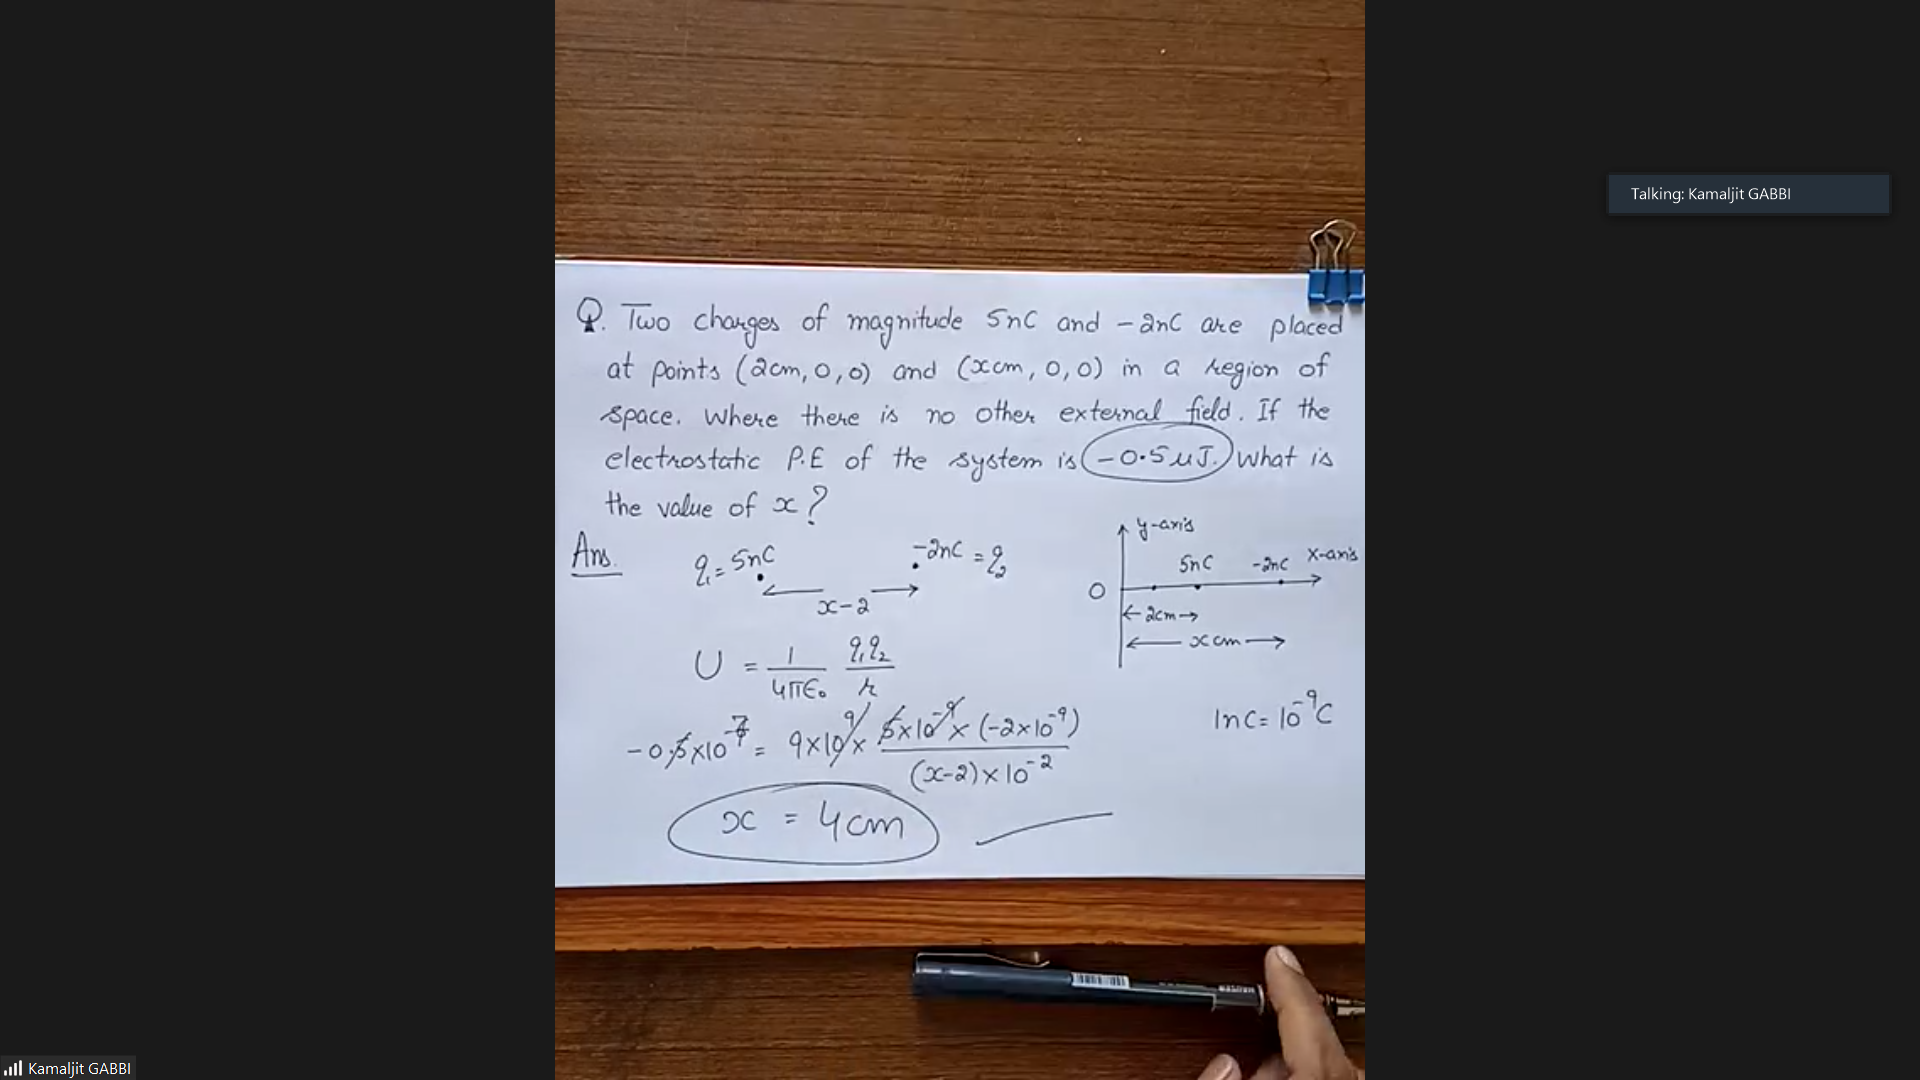 Talking: Kamaljit GABBI
Q. Two charges of magnitude 5nC and -2nC are placed
at points (2cm, 0, 0) and (xcm, 0, 0) in a region of
space. Where there is no other external field. If the
electrostatic P.E of the system is -0.5μJ. What is
the value of x?
Ans.
q₁ = 5nC
-2nC = q₂
x-2
y-axis
5nC -2nC x-axis
O
2cm
x cm
U = 1/4πε₀ q₁q₂/r
1nC = 10⁻⁹C
-0.5x10⁻⁷ = 9x10⁹x 5x10⁻⁹x(-2x10⁻⁹)/(x-2)x10⁻²
x = 4cm
Kamaljit GABBI